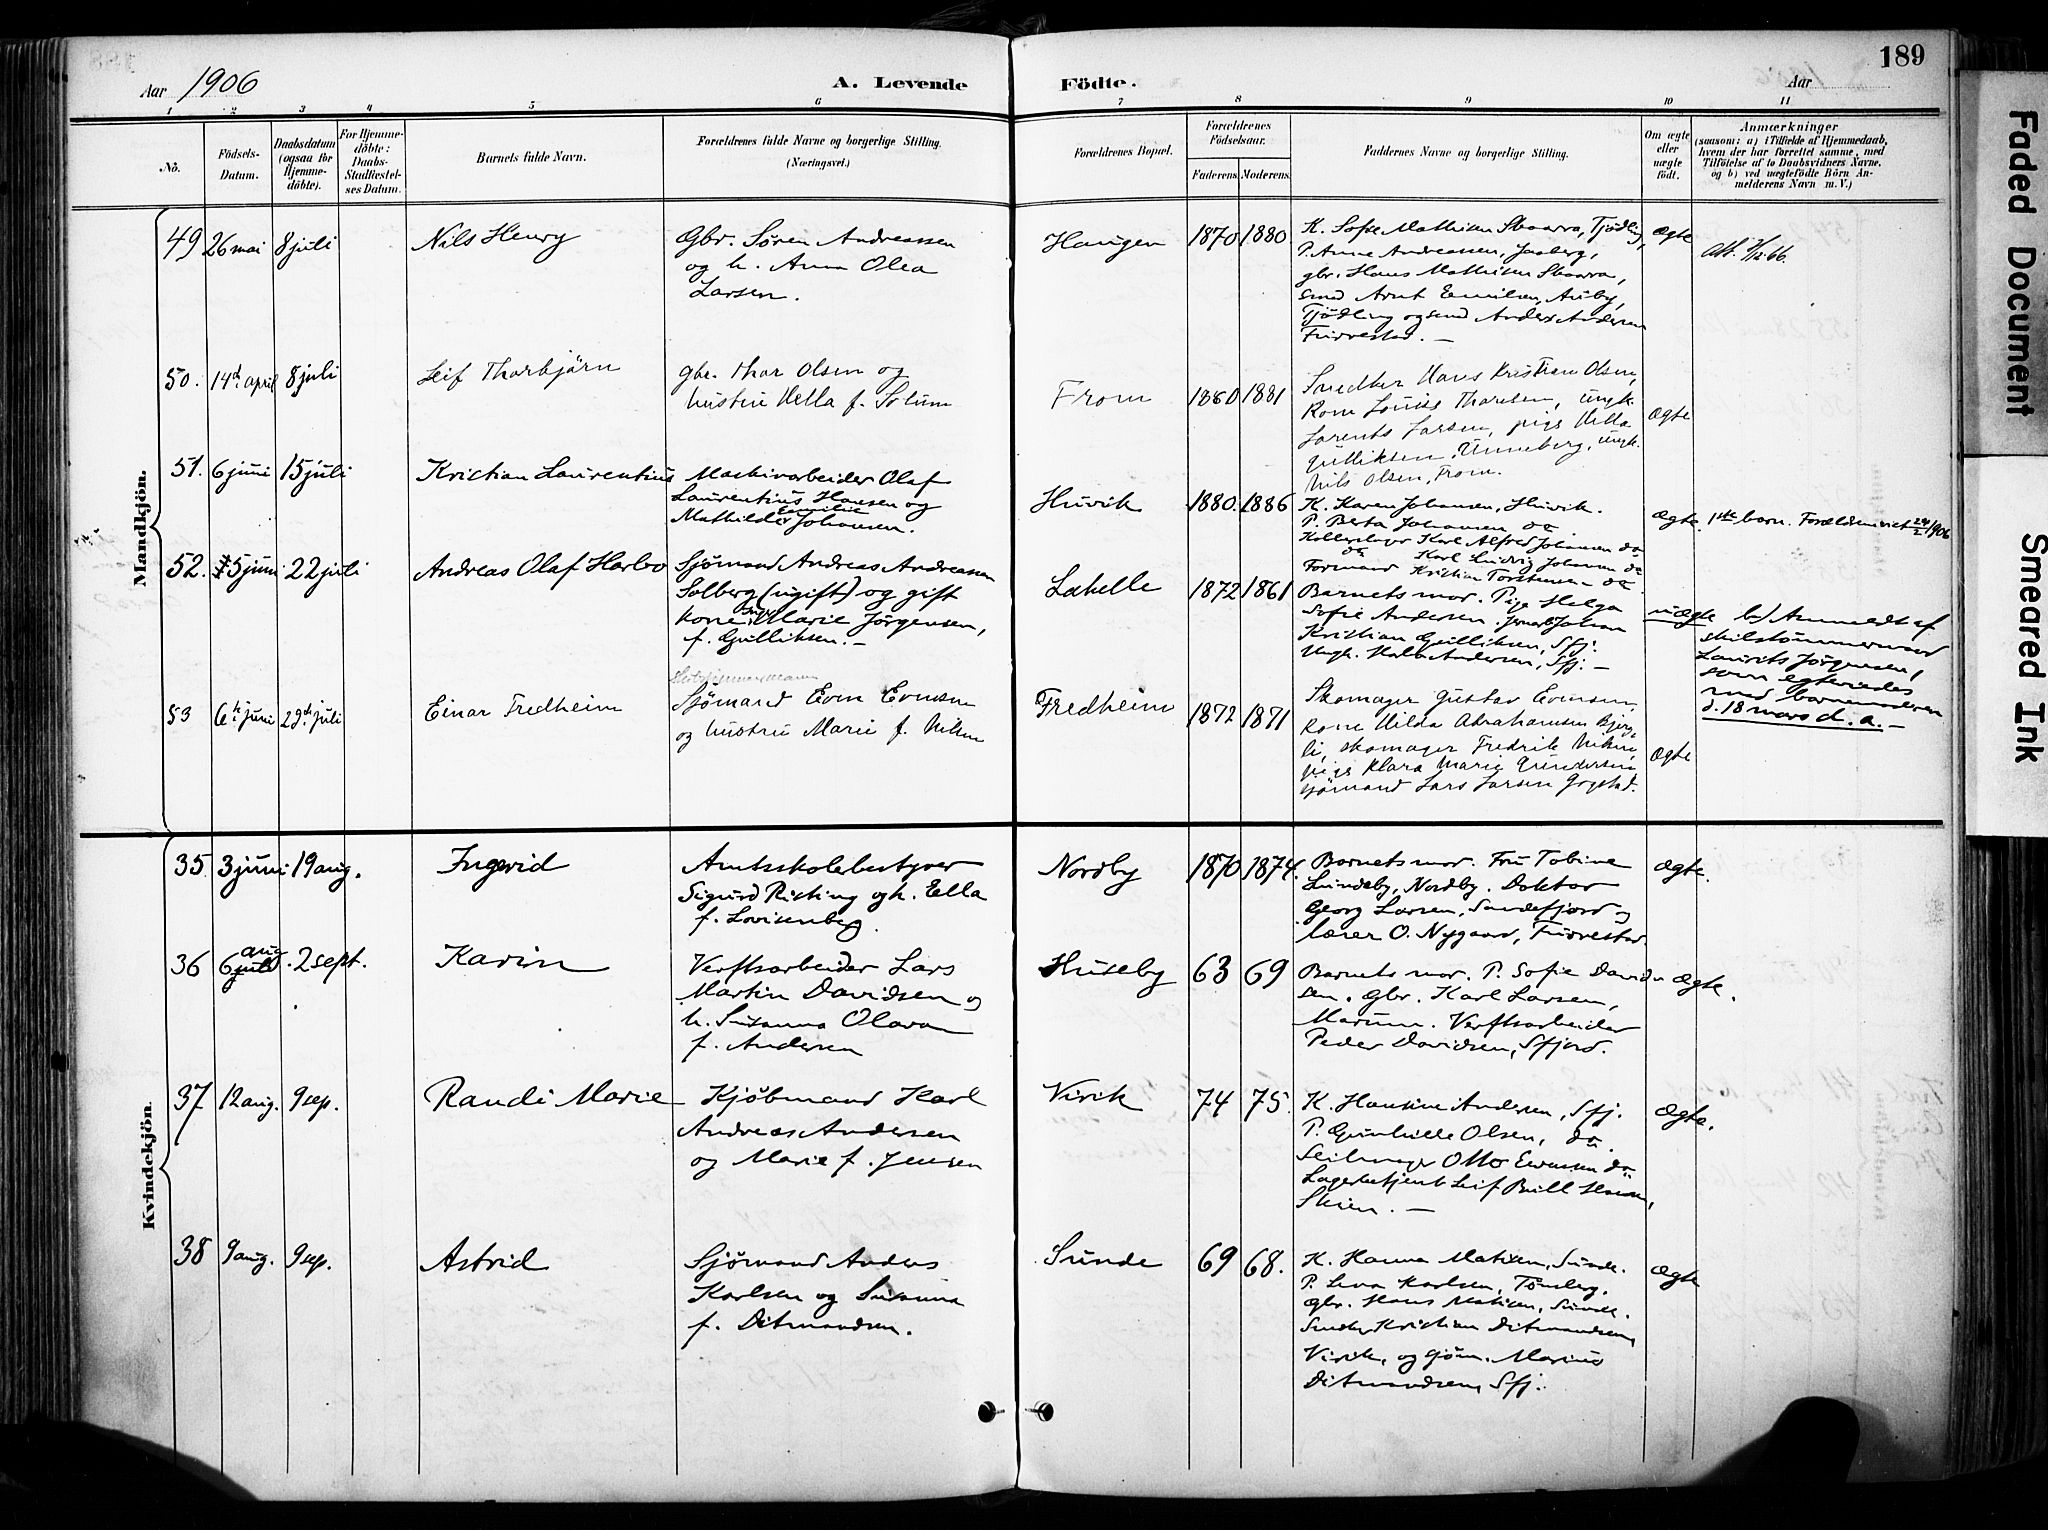 189
Aar 1906
A. Levende Födte.
Aar
1 2 3 4 5 6 7 8 9 10 11
No.
Födsels-Datum.
Daabsdatum (ogsaa for Hjemmedöbte).
For Hjemmedöbte: Daabs-Stadfæstelses Datum.
Barnets fulde Navn.
Forældrenes fulde Navne og borgerlige Stilling. (Næringsvei.)
Forældrenes Bopæl.
Forældrenes Födselsaar.
Faderens. Moderens.
Faddernes Navne og borgerlige Stilling.
Om ægte eller uægte födt.
Anmærkninger
(saasom: a) i Tilfælde af Hjemmedaab, hvem der har forrettet samme, med Tilföielse af to Daabsvidners Navne, og b) ved uægtefödte Börn Anmelderens Navn m. V.)
Mandkjön.
49 26 mai 8 juli
Nils Henry
Gbr. Søren Andreassen
og h. Anna Olea
Larsen.
Haugen
1870 1880
K. Sofie Mathisen Skaarra, Tjödling,
P. Anne Andreassen, Jaaberg,
gbr. Hans Mathisen Skaarra,
smed Arnt Emilsen, Auby,
Tjödling og smed Anders Andersen
Furrestad. —
Ægte
50. 14de april 8 juli
Leif Thorbjörn
gbr. Thor Olsen og
hustru Hella f. Solum
From
1860 1881
Snedker Hans Kristian Olsen,
Kone Louise Thoresen, ungk.
Lorents Larsen, pige Hella
Gulliksen, Unneberg, ungk.
Nils Olsen, From.
Ægte
51. 6 juni 15 juli
Kristian Laurentius
Maskinarbeider Olaf
Laurentius Hansen og
Mathilde Emilie Johansen.
Huvik
1880. 1886
K. Karen Johansen, Huvik.
P. Berta Johansen do
Karl Alfred Johansen do
do Karl Ludvig Johansen do
Formand Kristian Torstensen — do.
Ægte.
1ste barn. Forældrene viet 1906
52. 5 juni 22 juli
Andreas Olaf Harbo
Sjømand Andreas Andreassen
Solberg (ugift) og gift
kone Marie Jörgensen,
f. Gulliksen. —
Lakelle
1872 1861
Barnets mor. Pige Helga
Sofie Andersen. Johan
Kristian Gulliksen, Sfj.
Ungk. Andersen, Sfj. —
uægte
b) Anmeldt af
skibstömmermand
Laurits Jörgensen,
som egteviedes
med barnemoderen
d. 18 mars d. a. —
53 6te juni 29de juli
Einar Fredheim
Skibstömmermann
Sjømand Even Evensen
og hustru Marie f. Nilsen
Fredheim
1872 1871
Skomager Gustav Evensen,
Kone Hilda Abrahamsen Bjerge-
li, skomager Fredrik Nilsen,
pige Klara Marie Gundersen
sjømand Lars Larsen Gogstad.
Ægte
Kvindekjön.
35 3 juni 19 aug.
Ingerid
Amtsskolebestyrer
Sigurd Risting og h. Ella
f. Lovisenberg.
Nordby
1870 1874.
Barnets mor. Fru Tobine
Lundeby, Nordby. Doktor
Georg Larsen, Sandefjord og
lærer O. Nygaard, Furrestad.
Ægte.
36 6 juli aug. 2 sept.
Karin
Verftsarbeider Lars
Martin Davidsen og
h. Susanna Olava
f. Andersen
Huseby
63 69
Barnets mor. P. Sofie David-
sen. Gbr. Karl Larsen,
Marum. Verftsarbeider
Peder Davidsen, Sfjord.
Ægte.
37 12 aug. 9 sep.
Randi Marie
Kjøbmand Karl
Andreas Andersen
og Marie f. Jensen
Virik
74 75.
K. Hansine Andersen, Sfj.
P. Gunhilde Olsen, do.
Seilmager Otto Evensen do
Lagerbetjent Leif Bull Hansen,
Skien. —
Ægte.
38 9 aug. 9 sep.
Astrid
Sjømand Anders
Karlsen og Susanna
f. Ditmandsen.
Sunde
69 68.
K. Hanna Matisen, Sunde.
P. Lena Karlsen, Tönsberg.
Gbr. Hans Matisen, Sunde.
Snedker Kristian Ditmandsen,
Virik, og sjöm. Marius
Ditmandsen, Sfj.
Ægte
Faded Document
Smeared Ink